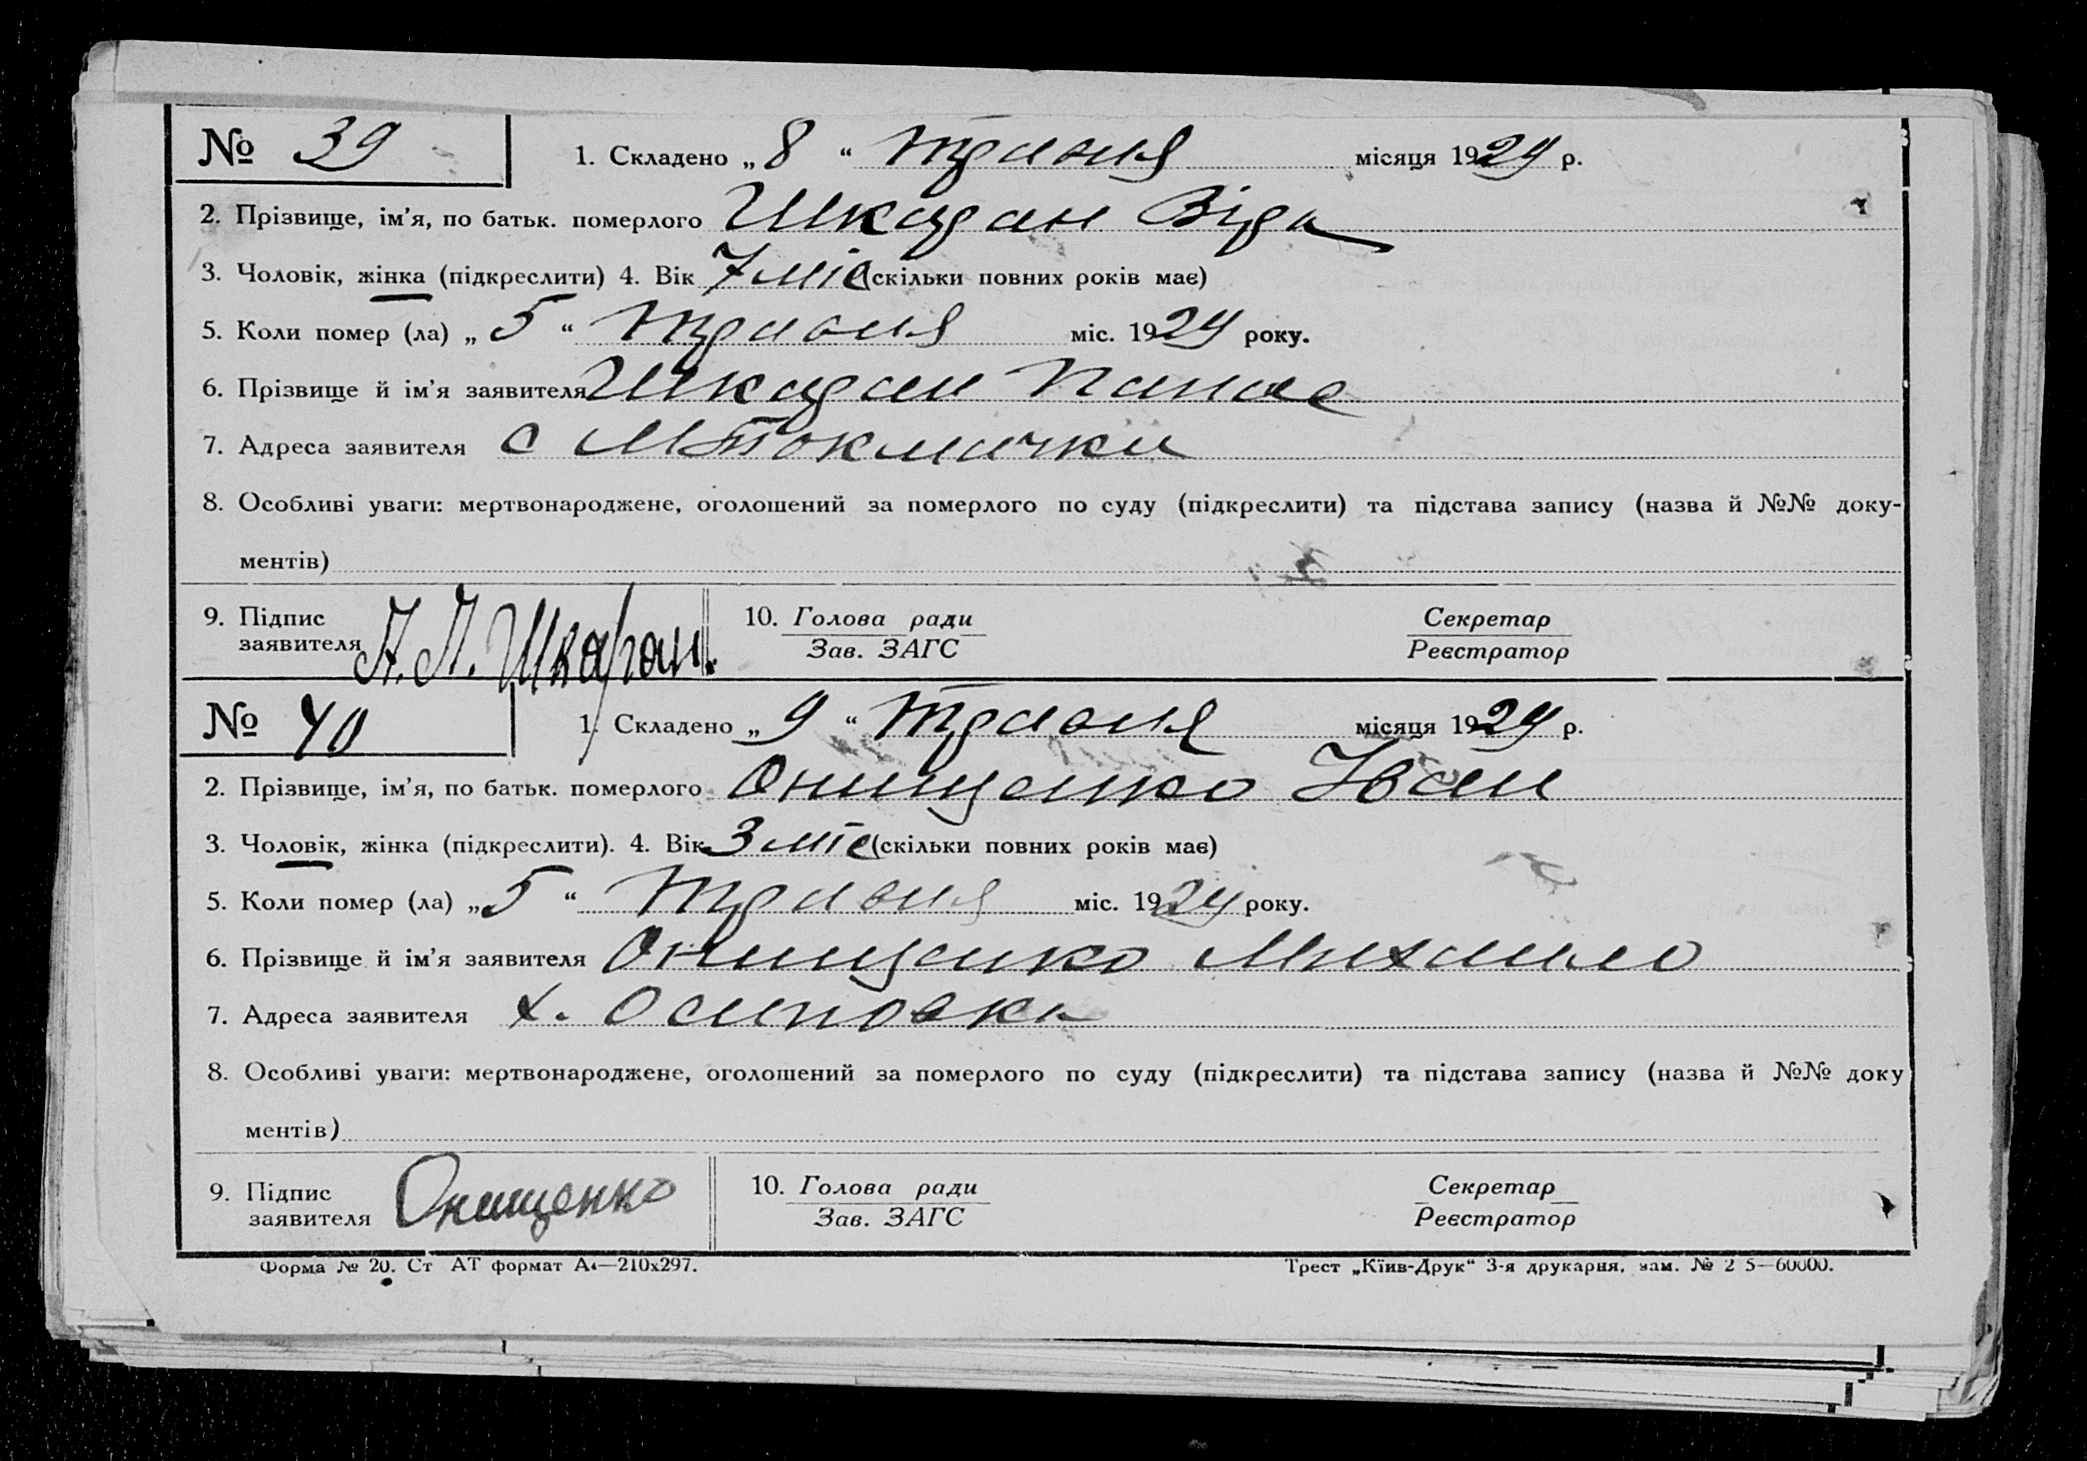 № 39 1. Складено „ 8 “ травня місяця 1924 р.
2. Прізвище, ім’я, по батьк. померлого Шкаран Віра
3. Чоловік, жінка (підкреслити) 4. Вік 7 міс (скільки повних років має)
5. Коли помер (ла) „ 5 “ травня міс. 1924 року.
6. Прізвище й ім’я заявителя Шкаран Панас
7. Адреса заявителя с М Токмачки
8. Особливі уваги: мертвонароджене, оголошений за померлого по суду (підкреслити) та підстава запису (назва й №№ доку-
ментів)
9. Підпис 10. Голова ради Секретар
заявителя А. П. Шкаран. Зав. ЗАГС Реєстратор
№ 40 1. Складено „ 9 “ травня місяця 1924 р.
2. Прізвище, ім’я, по батьк. померлого Онищенко Іван
3. Чоловік, жінка (підкреслити). 4. Вік 3 міс (скільки повних років має)
5. Коли помер (ла) „ 5 “ травня міс. 1924 року.
6. Прізвище й ім’я заявителя Онищенко Михаило
7. Адреса заявителя х. Осиповка
8. Особливі уваги: мертвонароджене, оголошений за померлого по суду (підкреслити) та підстава запису (назва й №№ доку
ментів)
9. Підпис 10. Голова ради Секретар
заявителя Онищенко Зав. ЗАГС Реєстратор
Форма № 20. Ст АТ формат А4—210х297. Трест „Київ-Друк“ 3-я друкарня, зам. № 2 5—60000.